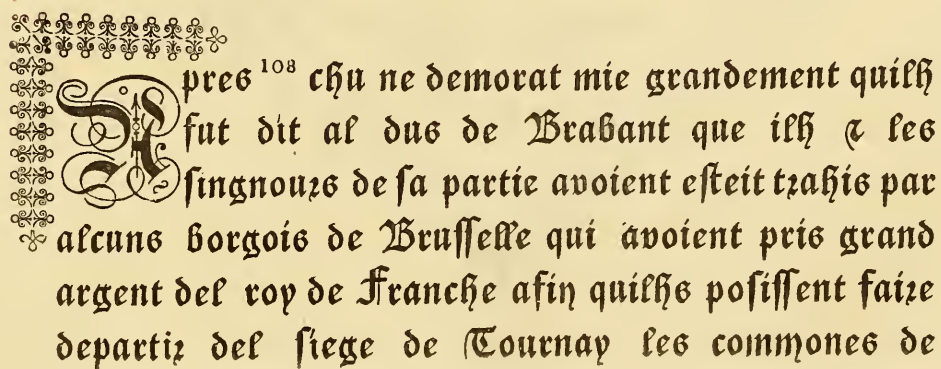 Apres 108 chu ne demorat mie grandement quilh
fut dit al dus de Brabant que ilh ⁊ les
singnouꝛs de sa partie avoient esteit tꝛahis par
alcuns borgois de Brusselle qui avoient pris grand
argent del roy de Franche afin quilhs posissent faiꝛe
departiꝛ del siege de Tournay les commones de